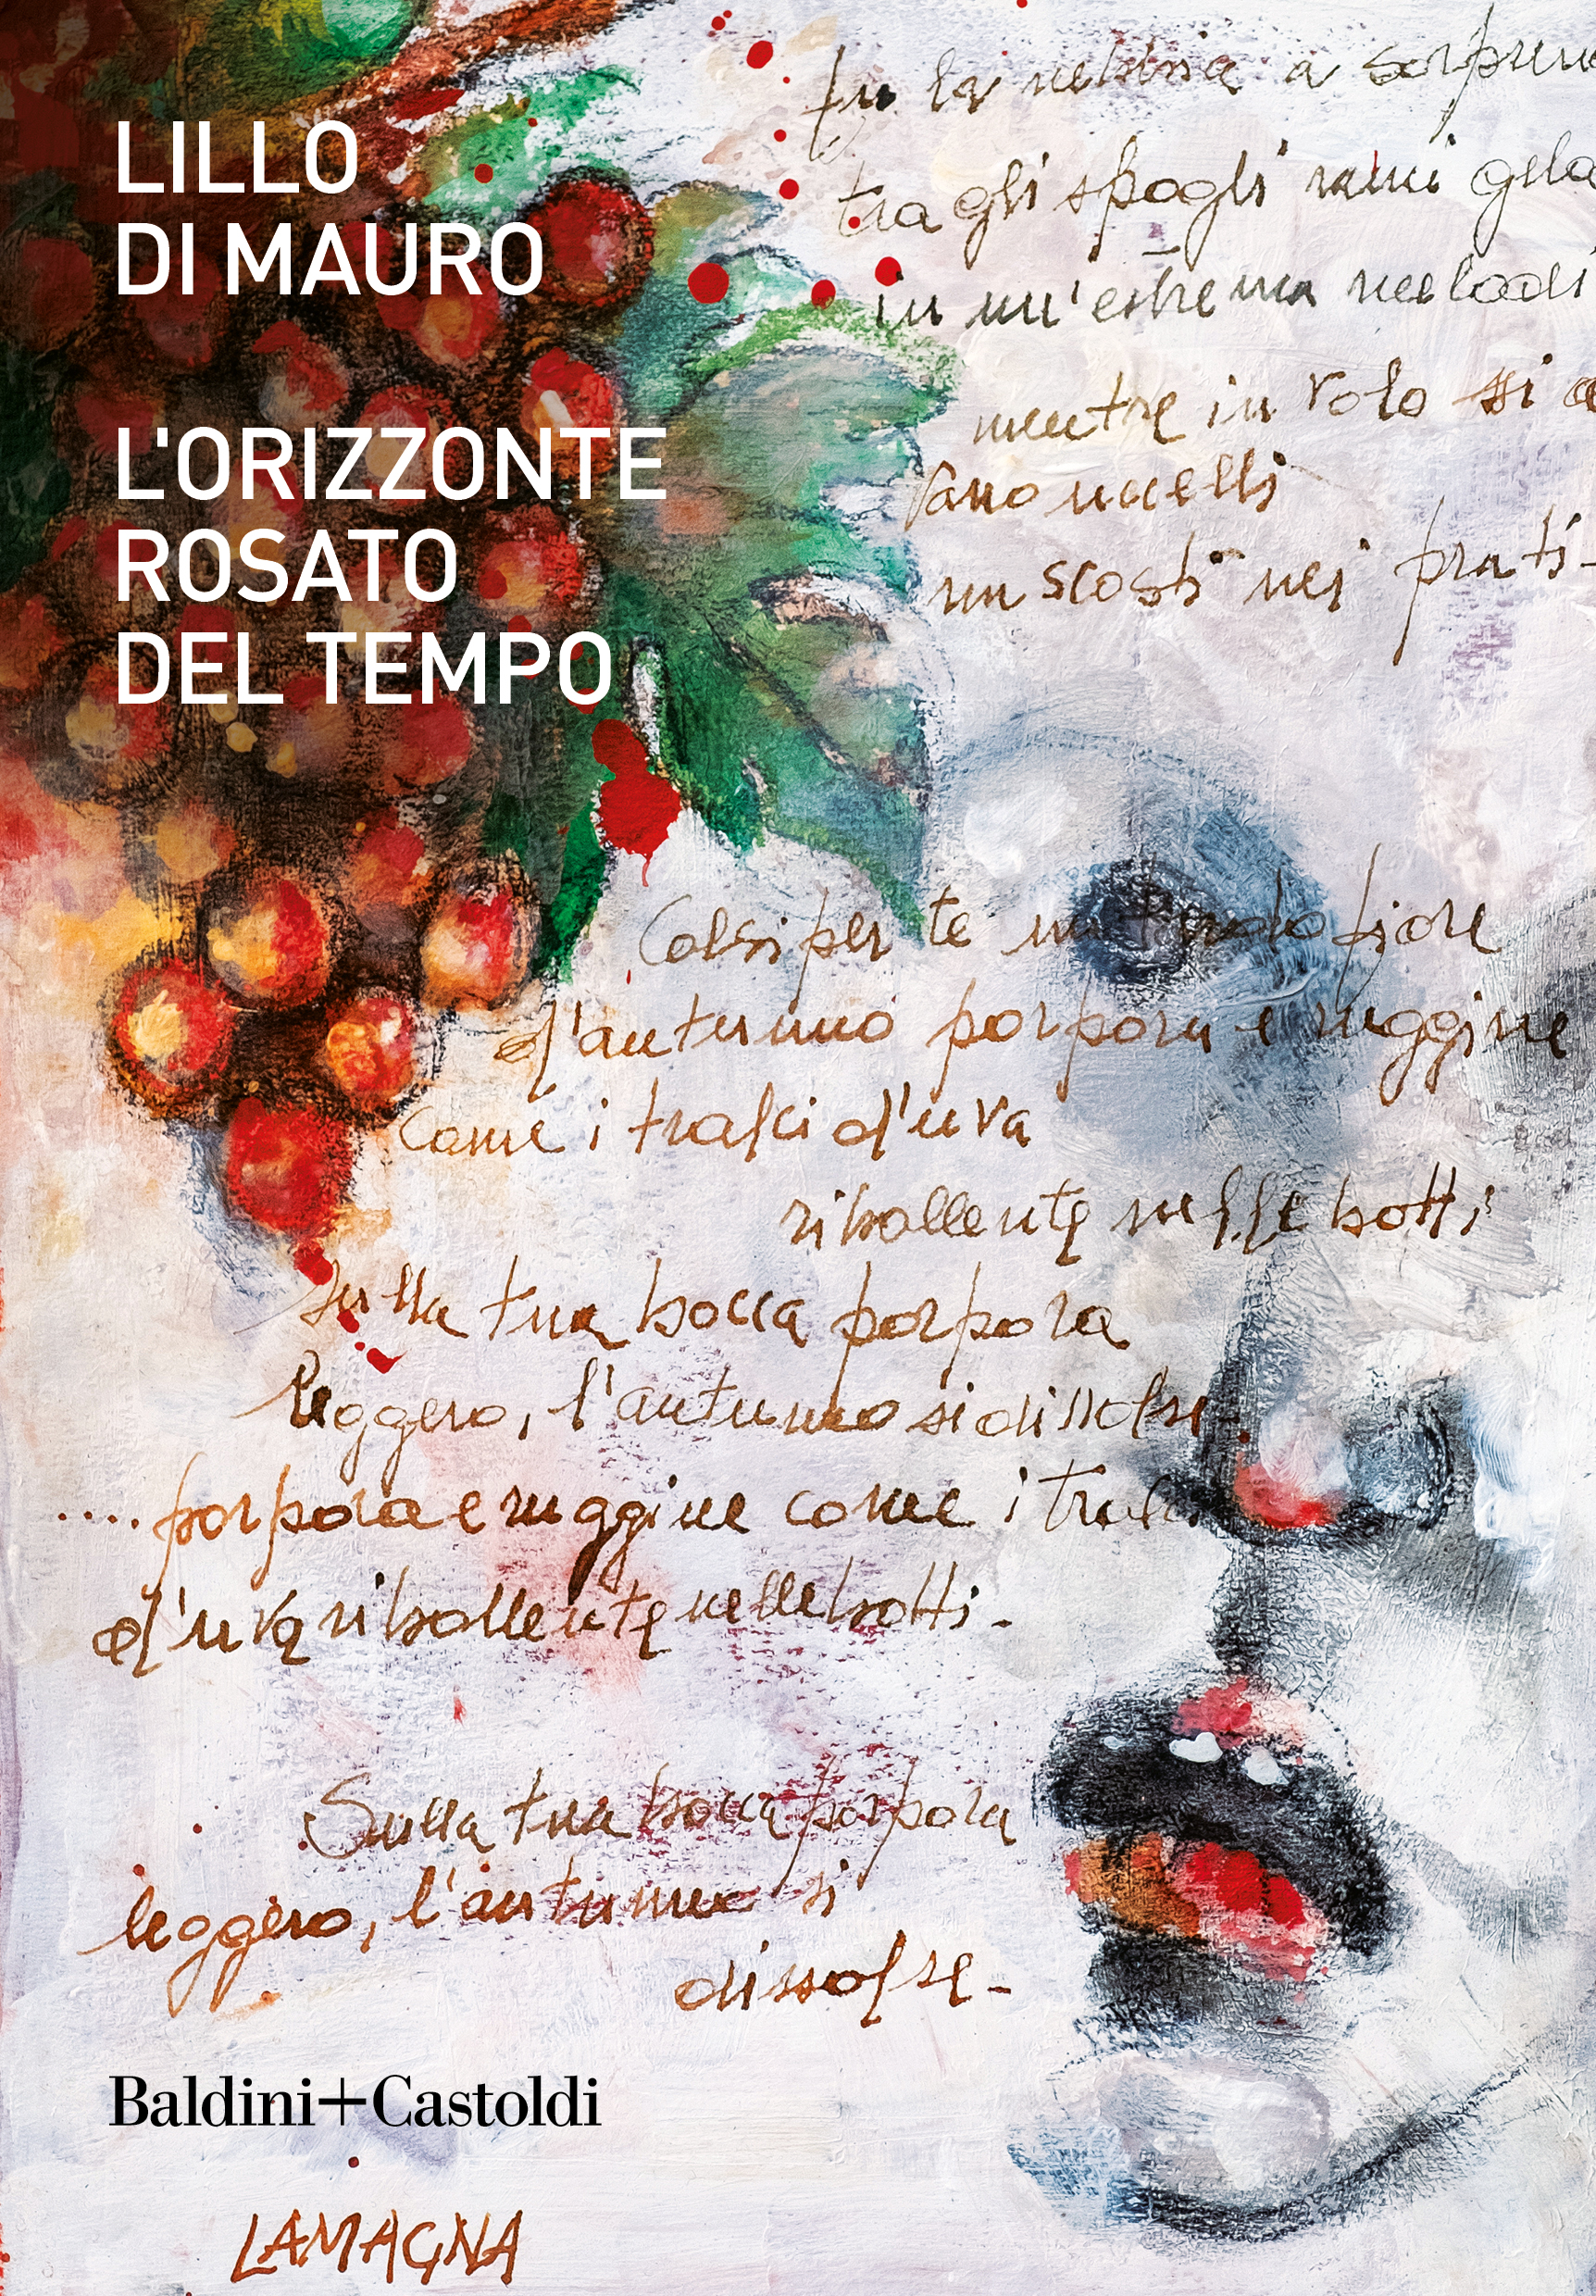 LILLO
DI MAURO
L'ORIZZONTE
ROSATO
DEL TEMPO
fu la nebbia a
tra gli spogli rami
in un'estrema
mentre in volo si
vano uccelli
nascosti nei prati-
Colsi per te un tenero fiore
d'autunno porpora e ruggine
come i tralci d'uva
ribollente nelle botti
sulla tua bocca porpora
leggero, l'autunno si dissolse-
.... porpora e ruggine come i tralci
d'uva ribollente nelle botti-
Sulla tua bocca porpora
leggero, l'autunno si
dissolse-
Baldini+Castoldi
LAMAGNA